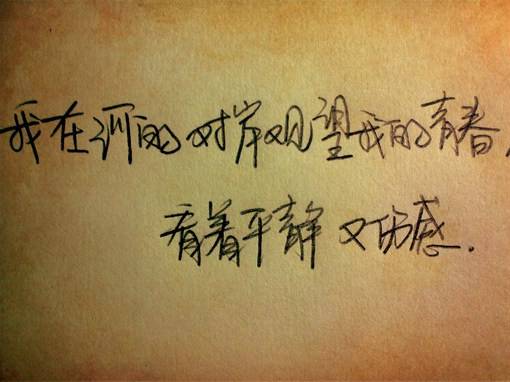 我在河的对岸观望我的青春，
看着平静又伤感.